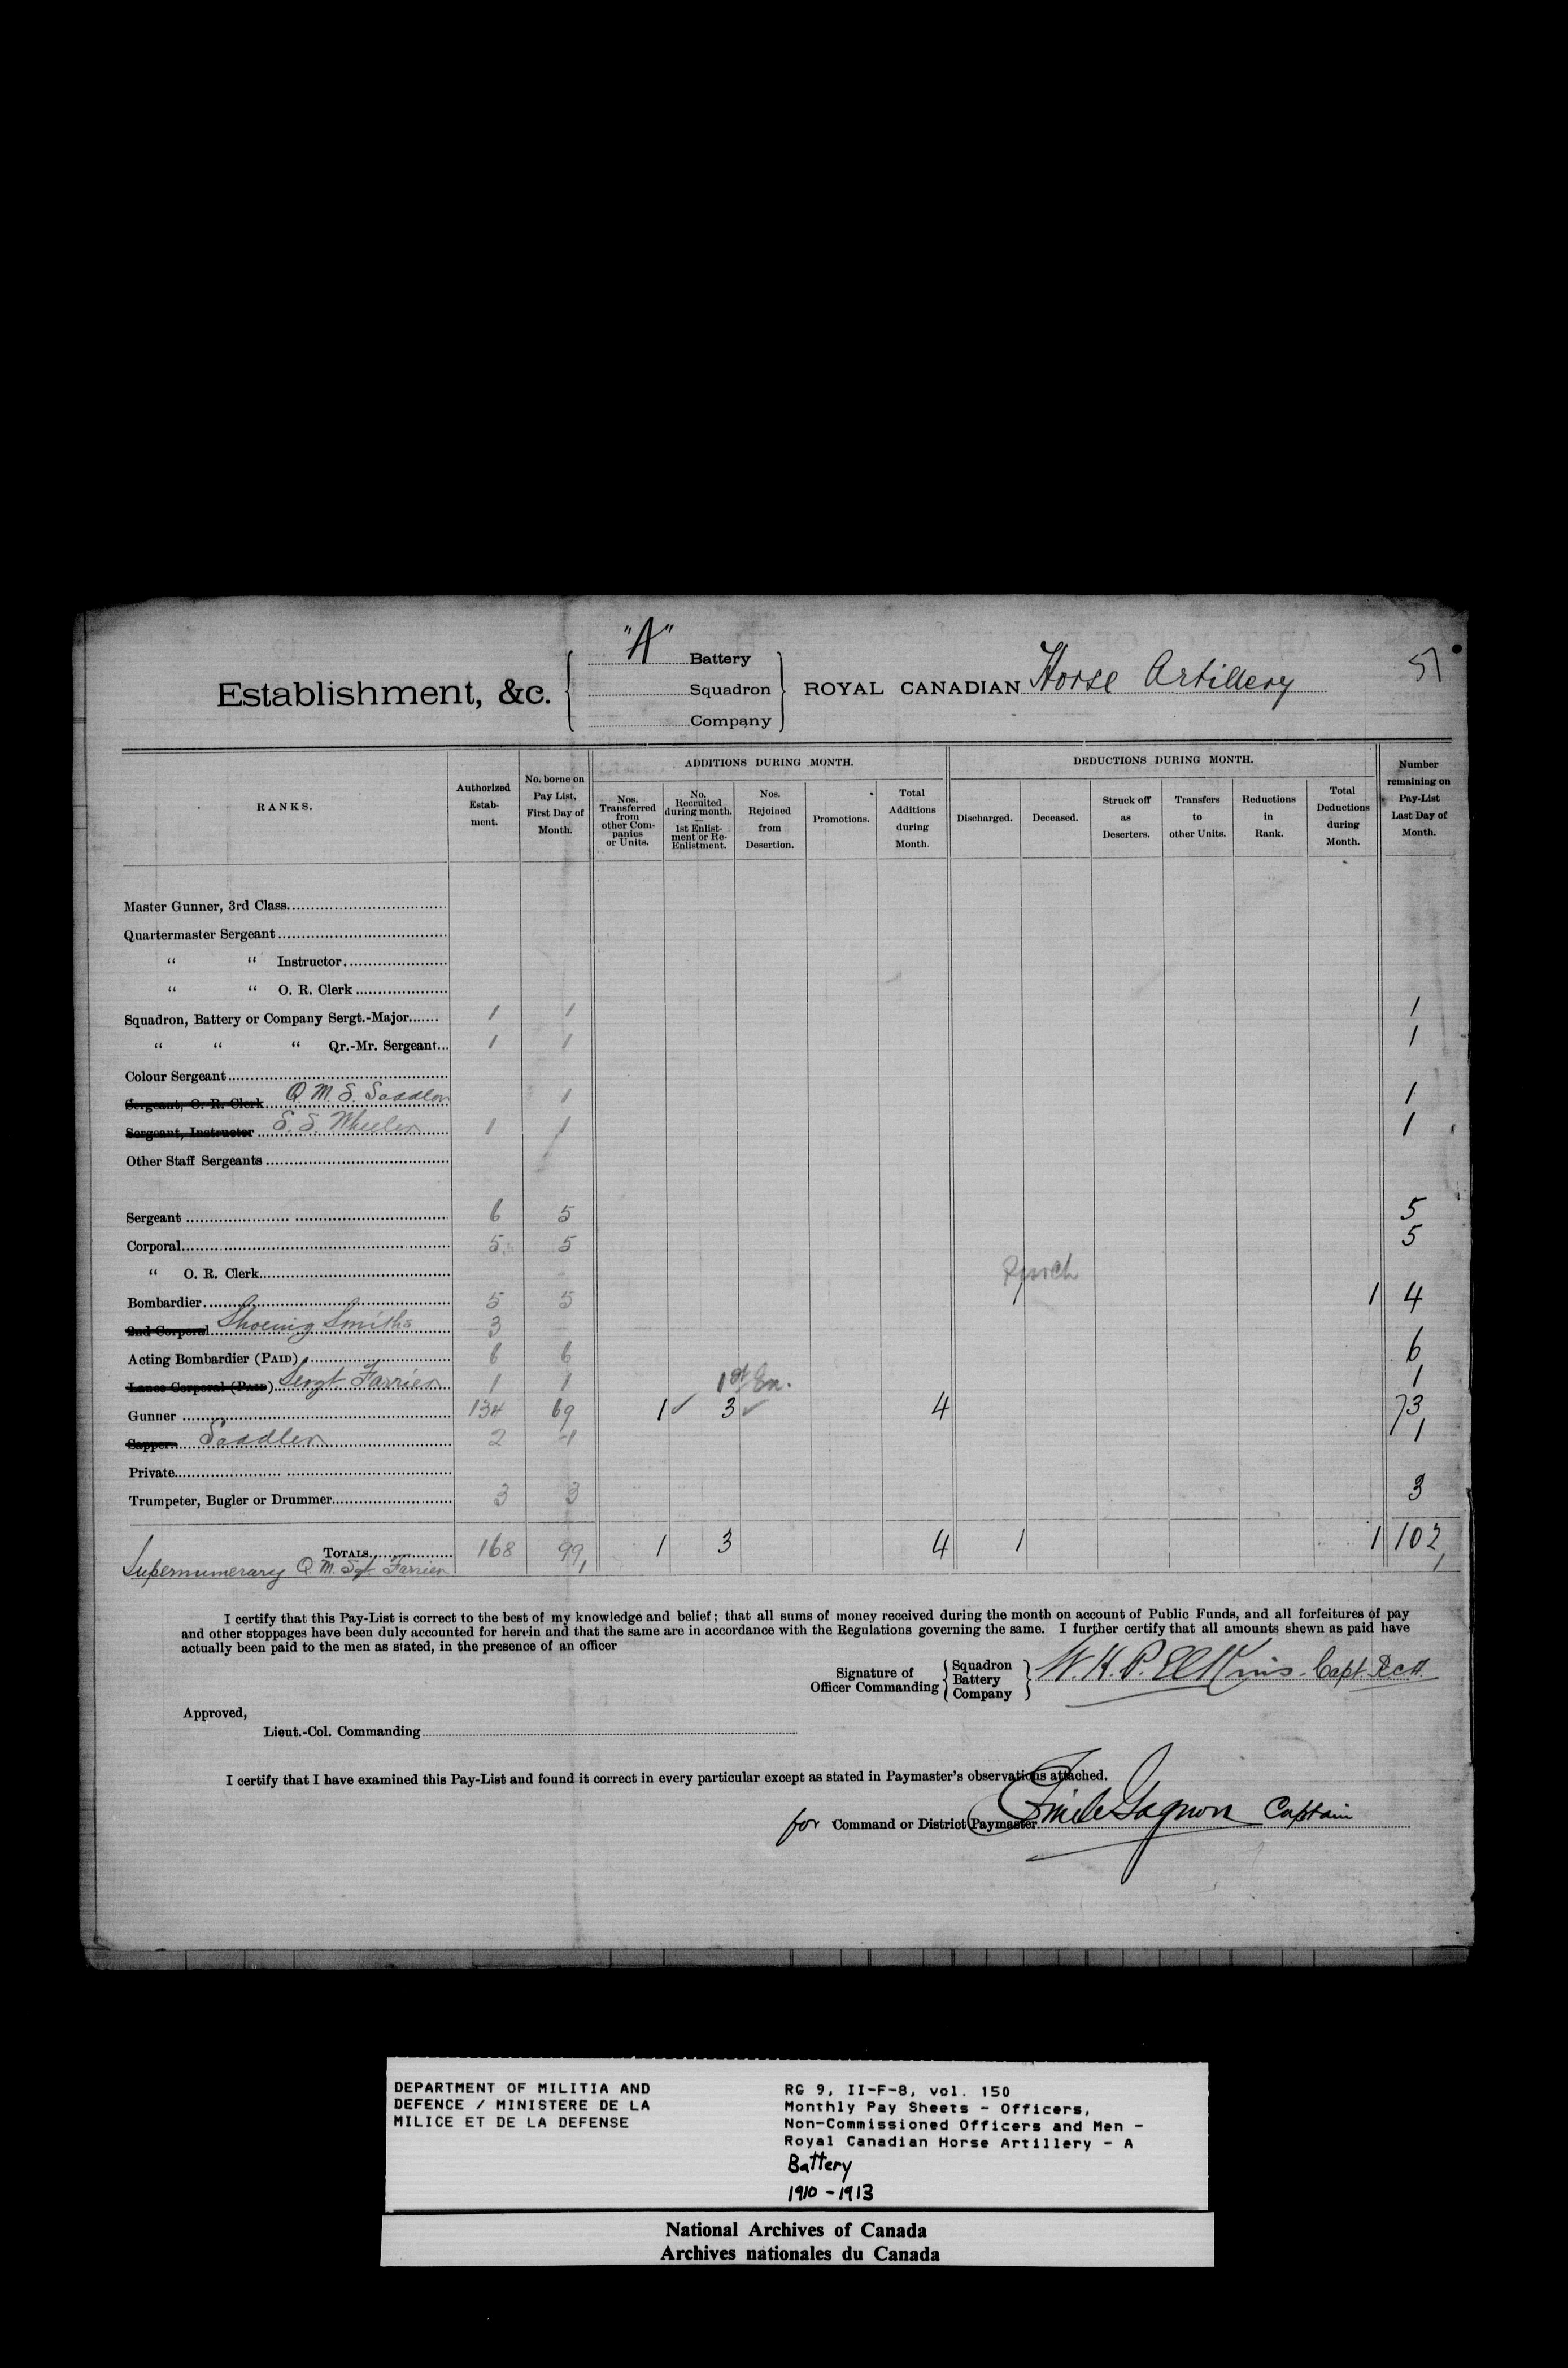 "A" Battery
Squadron
Company
Establishment, &c. ROYAL CANADIAN Horse Artillery
51
RANKS.
Authorized Establishment.
No. borne on Pay List, First Day of Month.
ADDITIONS DURING MONTH.
Nos. Transferred from other Companies or Units.
No. Recruited during month. — 1st Enlistment or Re-Enlistment.
Nos. Rejoined from Desertion.
Promotions.
Total Additions during Month.
DEDUCTIONS DURING MONTH.
Discharged.
Deceased.
Struck off as Deserters.
Transfers to other Units.
Reductions in Rank.
Total Deductions during Month.
Number remaining on Pay-List Last Day of Month.
Master Gunner, 3rd Class
Quartermaster Sergeant
“ “ Instructor
“ “ O. R. Clerk
Squadron, Battery or Company Sergt.-Major 1 1 1
“ “ “ Qr.-Mr. Sergeant 1 1 1
Colour Sergeant
Sergeant, O. R. Clerk Q. M. S. Saddler 1 1
Sergeant, Instructor S. S. Wheeler 1 1 1
Other Staff Sergeants
Sergeant 6 5 5
Corporal 5 5 5
“ O. R. Clerk
Bombardier 5 5 1 1 4
2nd Corporal Shoeing Smiths 3
Acting Bombardier (PAID) 6 6 6
Lance Corporal (PAID) Sergt Farrier 1 1 1
1st En.
Gunner 134 69 1 ✓ 3 ✓ 4 73
Sapper Saddler 2 1 1
Private
Trumpeter, Bugler or Drummer 3 3 3
TOTALS 168 99 1 3 4 1 1 102
Supernumerary Q. M. Sgt Farrier
I certify that this Pay-List is correct to the best of my knowledge and belief; that all sums of money received during the month on account of Public Funds, and all forfeitures of pay
and other stoppages have been duly accounted for herein and that the same are in accordance with the Regulations governing the same. I further certify that all amounts shewn as paid have
actually been paid to the men as stated, in the presence of an officer
Signature of Officer Commanding Squadron Battery Company W. H. P. Elkins. Capt. R.C.H.A.
Approved,
Lieut.-Col. Commanding
I certify that I have examined this Pay-List and found it correct in every particular except as stated in Paymaster's observations attached.
for Command or District Paymaster Emile Gagnon Captain
DEPARTMENT OF MILITIA AND
DEFENCE / MINISTERE DE LA
MILICE ET DE LA DEFENSE
RG 9, II-F-8, vol. 150
Monthly Pay Sheets - Officers,
Non-Commissioned Officers and Men -
Royal Canadian Horse Artillery - A
Battery
1910 - 1913
National Archives of Canada
Archives nationales du Canada